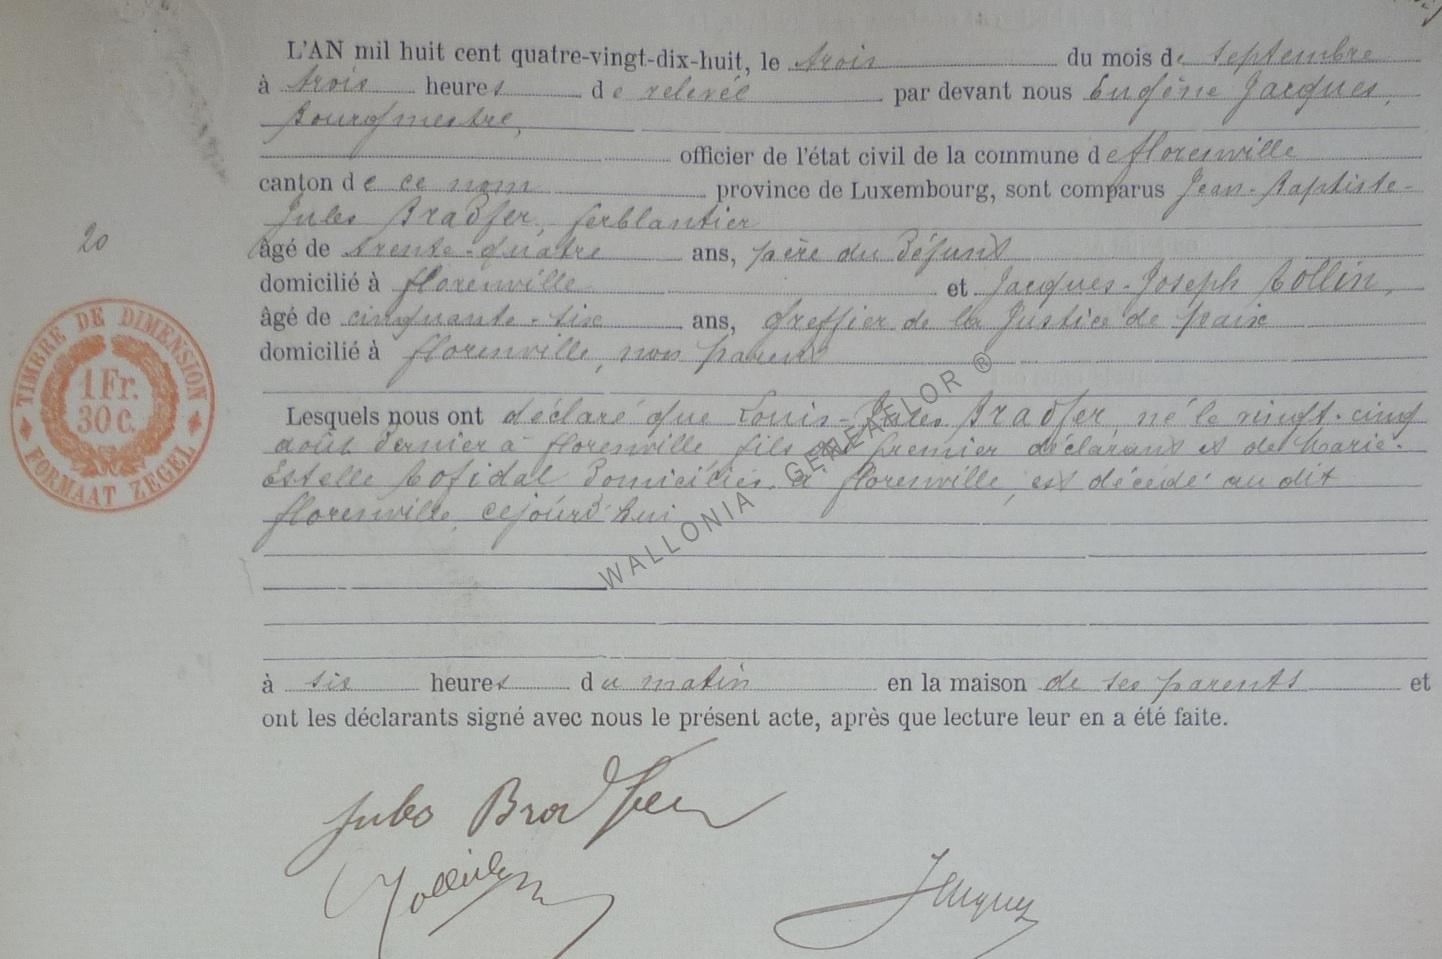 L'AN mil huit cent quatre-vingt-dix-huit, le trois du mois de septembre
à trois heures de relevée par devant nous Eugène Jacques,
Bourgmestre,
officier de l'état civil de la commune de florenville
canton de ce nom province de Luxembourg, sont comparus Jean-Baptiste-
Jules Bradfer, ferblantier
âgé de trente-quatre ans, père du défunt
20
domicilié à florenville et Jacques-Joseph Collin,
âgé de cinquante-six ans, Greffier de la Justice de paix
domicilié à florenville, non parent
TIMBRE DE DIMENSION
1 Fr.
30 c.
FORMAAT ZEGEL
Lesquels nous ont déclaré que Louis-Jules Bradfer, né le vingt-cinq
août dernier à florenville, fils du premier déclarant et de Marie-
Estelle Cofidal domiciliés à florenville, est décédé au dit
florenville, cejourd'hui
WALLONIA GENEAFLOR ®
à six heures du matin en la maison de ses parents et
ont les déclarants signé avec nous le présent acte, après que lecture leur en a été faite.
Jules Bradfer
Collin
Jacques